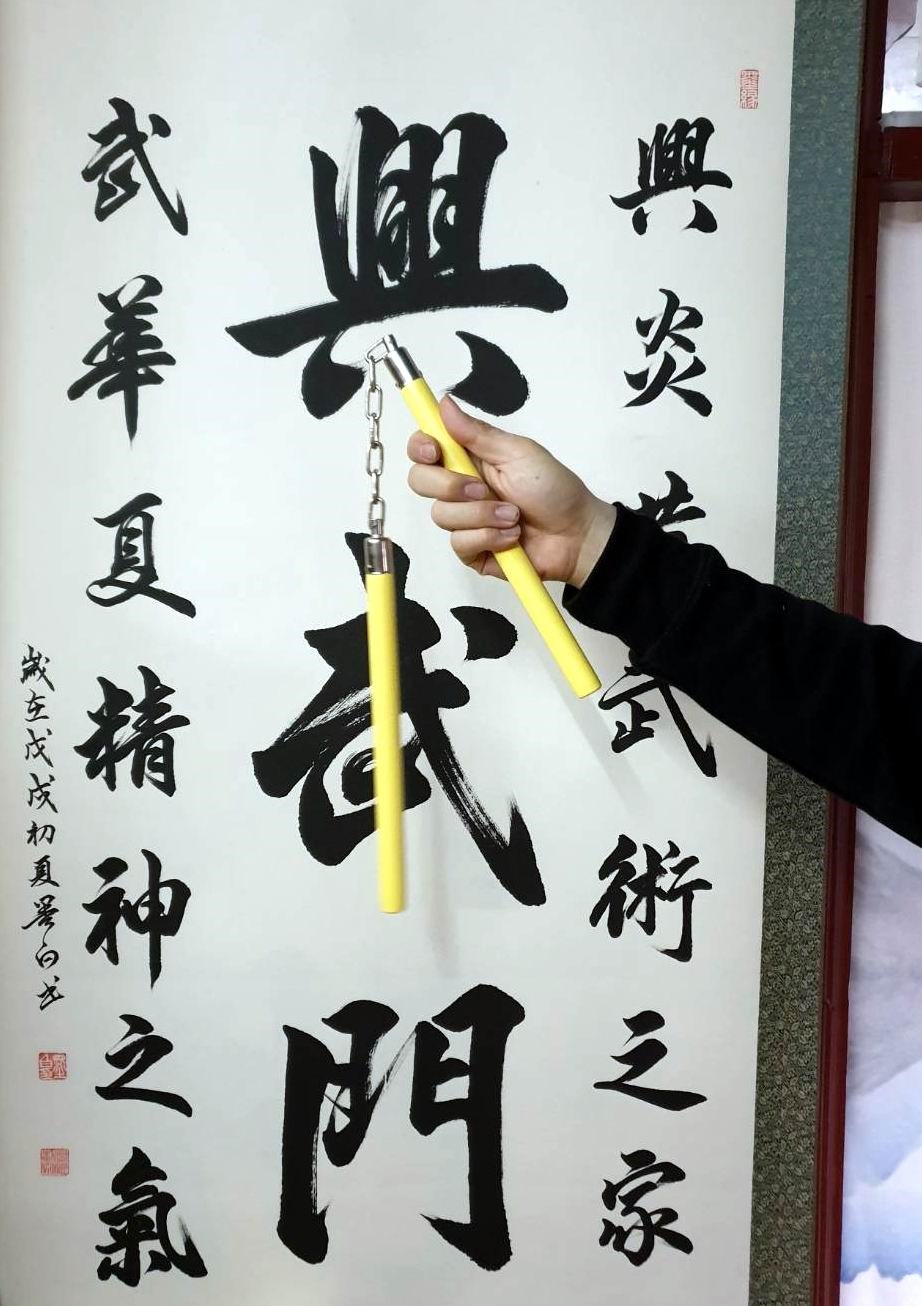 興炎黃武術之家
興武門
武華夏精神之氣
歲在戊戌初夏墨白书